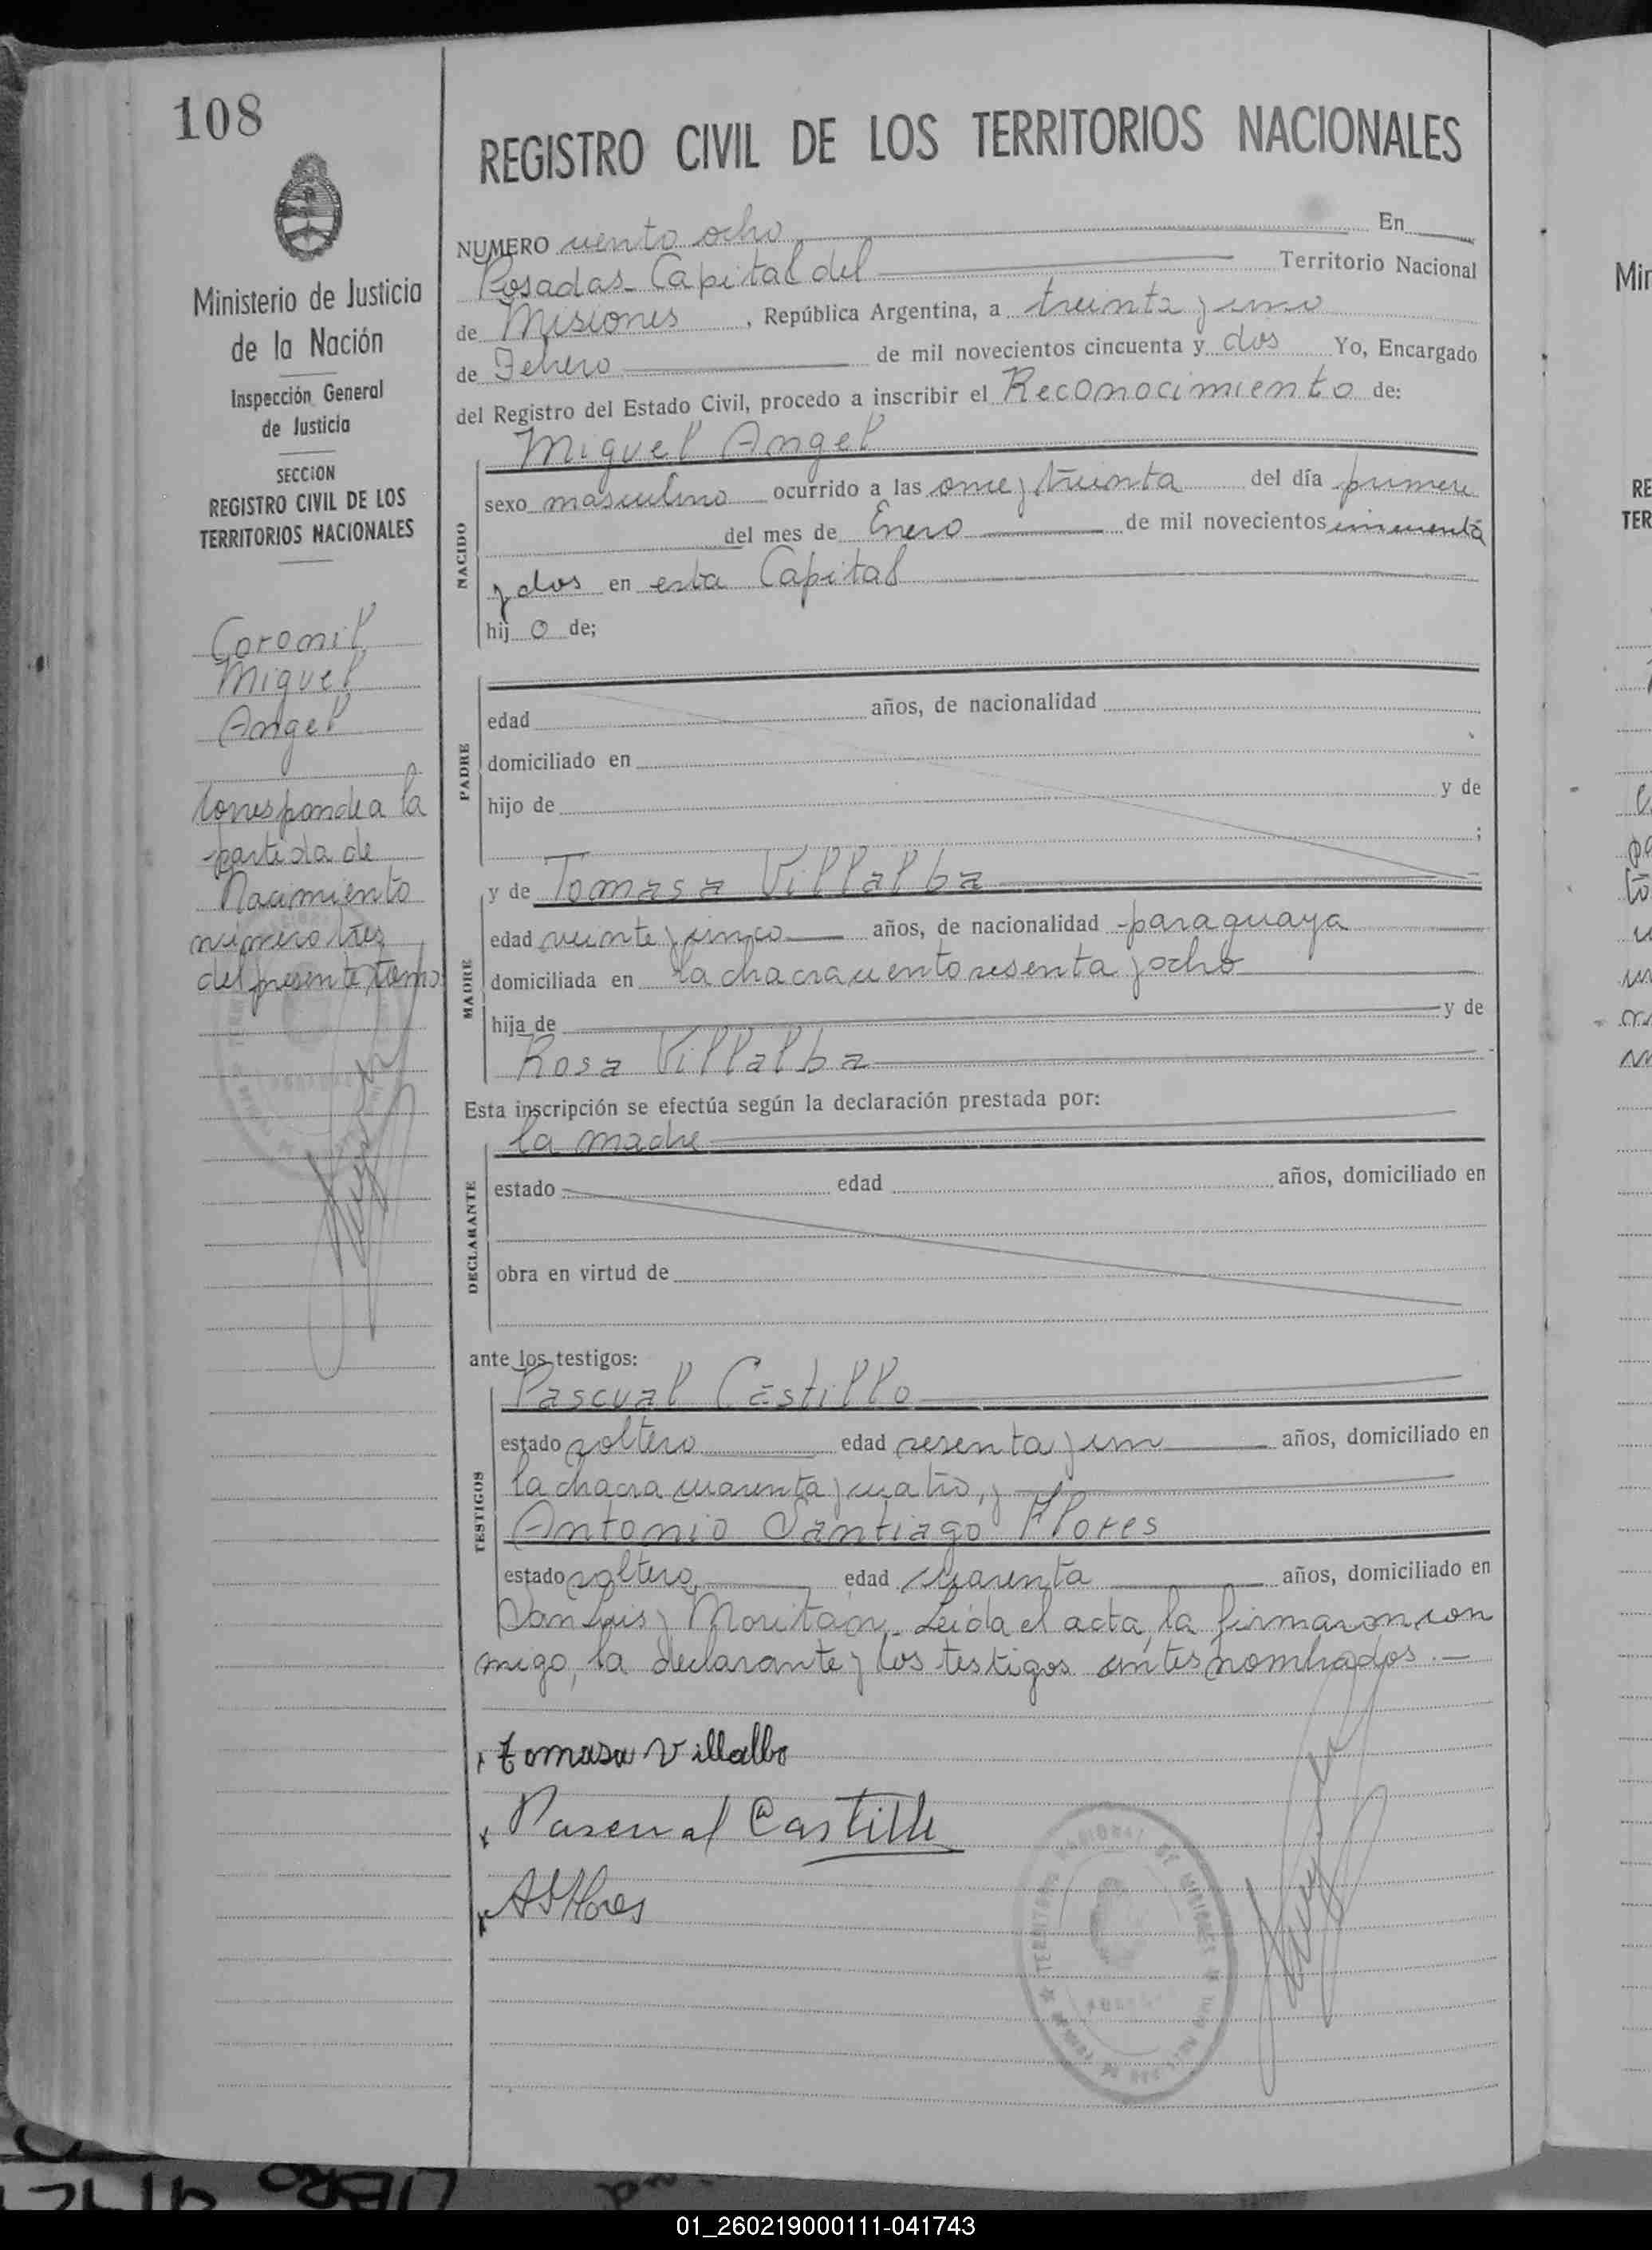 108
REGISTRO CIVIL DE LOS TERRITORIOS NACIONALES
Ministerio de Justicia
de la Nación
Inspección General
de Justicia
SECCION
REGISTRO CIVIL DE LOS
TERRITORIOS NACIONALES
Coronil
Miguel
Angel
Corresponde a la
partida de
Nacimiento
número tres
del presente tomo
NUMERO ciento ocho En
Posadas-Capital del Territorio Nacional
de Misiones, República Argentina, a treinta y uno
de Febrero de mil novecientos cincuenta y dos Yo, Encargado
del Registro del Estado Civil, procedo a inscribir el Reconocimiento de:
Miguel Angel
NACIDO
sexo masculino ocurrido a las once y treinta del día primero
del mes de Enero de mil novecientos cincuenta
y dos en esta Capital
hij o de;
PADRE
edad años, de nacionalidad
domiciliado en
hijo de y de
;
MADRE
y de Tomasa Villalba
edad veinte y cinco años, de nacionalidad paraguaya
domiciliada en la chacra ciento sesenta y ocho
hija de y de
Rosa Villalba
Esta inscripción se efectúa según la declaración prestada por:
la madre
DECLARANTE
estado edad años, domiciliado en
obra en virtud de
ante los testigos:
Pascual Castillo
TESTIGOS
estado soltero edad sesenta y un años, domiciliado en
la chacra cuarenta y cuatro, y
Antonio Santiago Flores
estado soltero edad cuarenta años, domiciliado en
San Luis y Moritán. Leída el acta, la firmaron con
migo, la declarante y los testigos antes nombrados.—
Tomasa Villalba
Pascual Castillo
ASFlores
TERRITORIO NACIONAL DE MISIONES
LIBRO
01_260219000111-041743